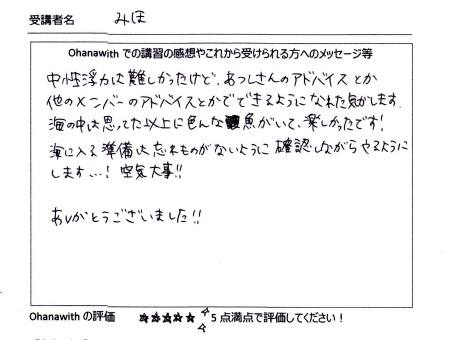 受講者名 みほ
Ohanawith での講習の感想やこれから受けられる方へのメッセージ等
中性浮力は難しかったけど、あつしさんのアドバイスとか
他のメンバーのアドバイスとかでできるようになれた気がします。
海の中は思ってた以上に色んな魚がいて、楽しかったです!
海に入る準備は忘れものがないように確認しながらやるように
します…! 空気大事!!
ありがとうございました!!
Ohanawith の評価 ☆☆☆☆☆ 5 点満点で評価してください!